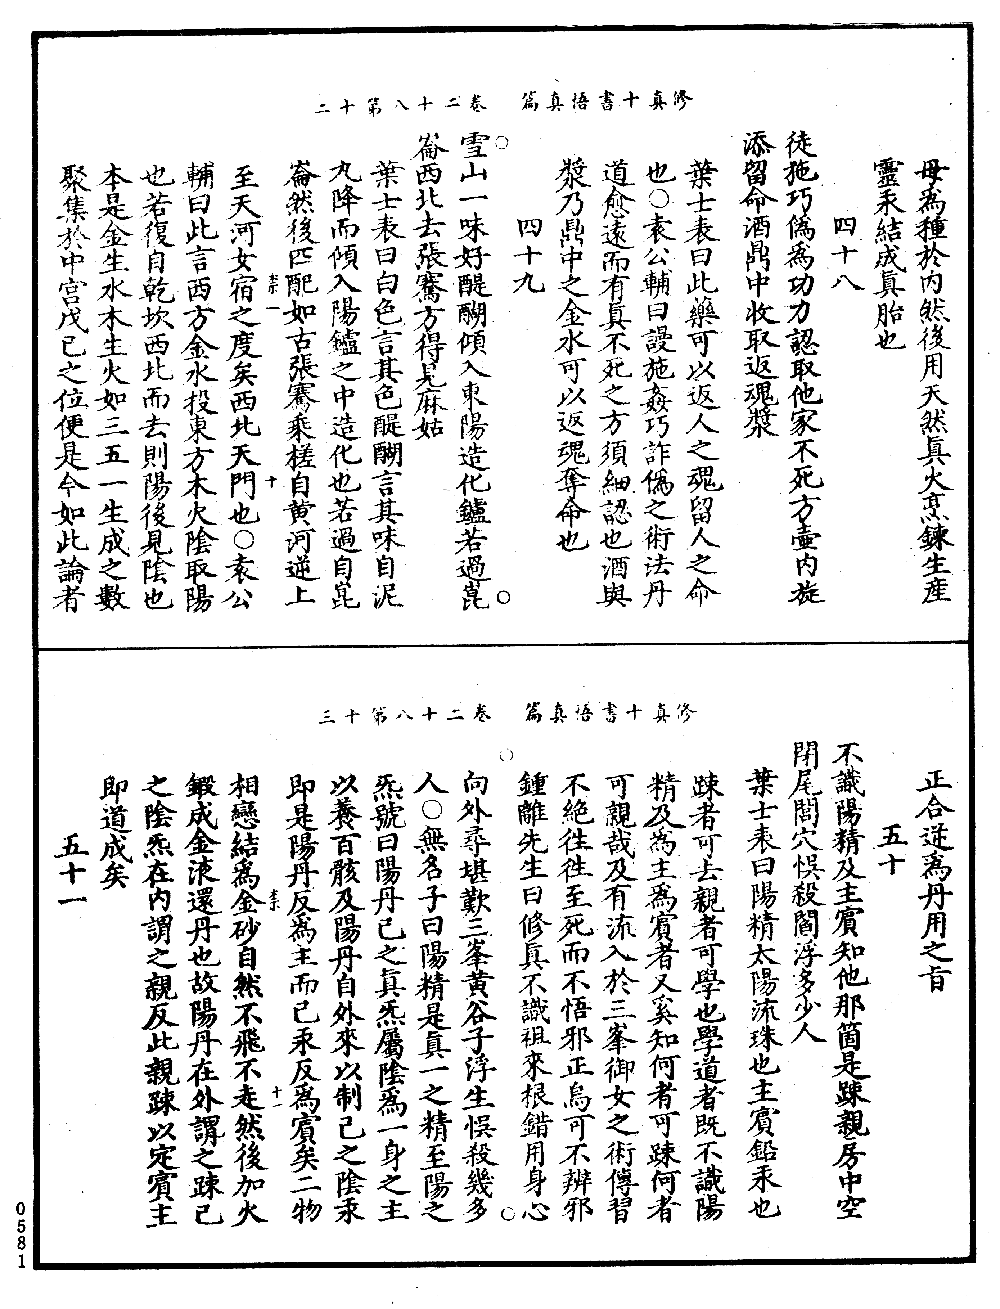 修真十書悟真篇　卷二十八第十二
母為種於内然後用天然真火烹鍊生産
靈汞結成真胎也
四十八
徒施巧偽為功力認取他家不死方壷内旋
添留命酒鼎中收取返魂漿
葉士表曰此藥可以返人之魂留人之命
也○袁公輔曰謾施姦巧詐偽之術法丹
道愈遠而有真不死之方須細認也酒與
漿乃鼎中之金水可以返魂奪命也
四十九
雪山一味好醍醐傾入東陽造化鑪若過崑
崙西北去張騫方得見麻姑
葉士表曰白色言其色醍醐言其味自泥
丸降而傾入陽鑪之中造化也若過自崑
崙然後匹配如古張騫乘槎自黄河逆上
至天河女宿之度矣西北天門也○袁公
輔曰此言西方金水投東方木火陰取陽
也若復自乾坎西北而去則陽後見陰也
本是金生水木生火如三五一生成之數
聚集於中宫戊己之位便是今如此論者
修真十書悟真篇　卷二十八第十三
正合逆為丹用之旨
五十
不識陽精及主賓知他那箇是踈親房中空
閉尾閭穴悮殺閻浮多少人
葉士表曰陽精太陽流珠也主賓鉛汞也
踈者可去親者可學也學道者既不識陽
精及為主為賓者又奚知何者可踈何者
可親哉及有流入於三峯御女之術傳習
不絶往往至死而不悟邪正烏可不辨邪
鍾離先生曰修真不識祖來根錯用身心
向外尋堪歎三峯黄谷子浮生悮殺幾多
人○無名子曰陽精是真一之精至陽之
炁號曰陽丹己之真炁屬陰為一身之主
以養百骸及陽丹自外來以制己之陰汞
即是陽丹反為主而己汞反為賓矣二物
相戀結為金砂自然不飛不走然後加火
鍛成金液還丹也故陽丹在外謂之踈己
之陰炁在内謂之親反此親踈以定賓主
即道成矣
五十一
0581